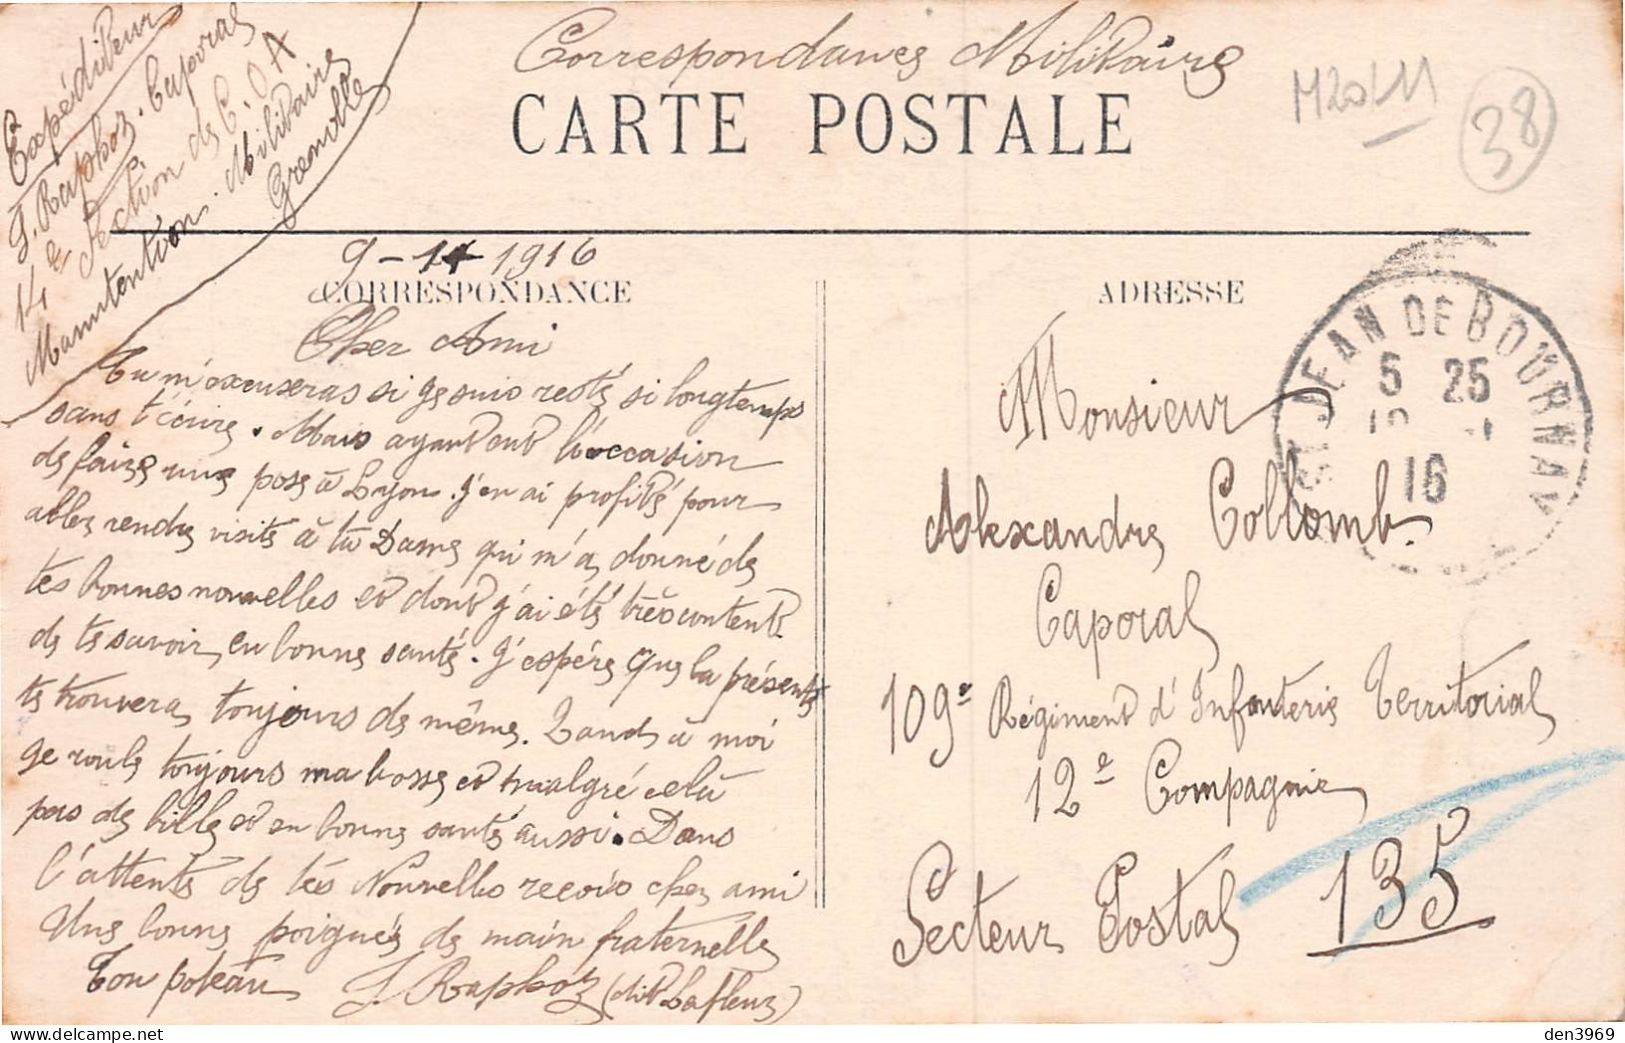 Correspondance Militaire
CARTE POSTALE
M20/11
38
Expéditeur
J. Raphoz. Caporal
14e Section de C.O.A
Manutention. Militaire
Grenoble
9-11-1916
CORRESPONDANCE
Cher Ami
Tu m'excuseras si je suis resté si longtemps
sans t'écrire. Mais ayant eut l'occasion
de faire une pose à Lyon. j'en ai profité pour
aller rendre visite à ta Dame qui m'a donné de
tes bonnes nouvelles et dont j'ai été très content
de te savoir en bonne santé. J'espère que la présente
te trouvera toujours de même. Tand à moi
je roule toujours ma bosse et malgré celà
pas de bille et en bonne santé aussi. Dans
l'attente de tes Nouvelles reçois cher ami
Une bonne poignée de main fraternelle
Ton poteau J. Raphoz (dit Lafleur)
ADRESSE
ST JEAN DE BOURNAY
5 25
16
Monsieur
Alexandre Collomb.
Caporal
109e Régiment d'Infanterie Territorial
12e Compagnie
Secteur Postal 135
den3969